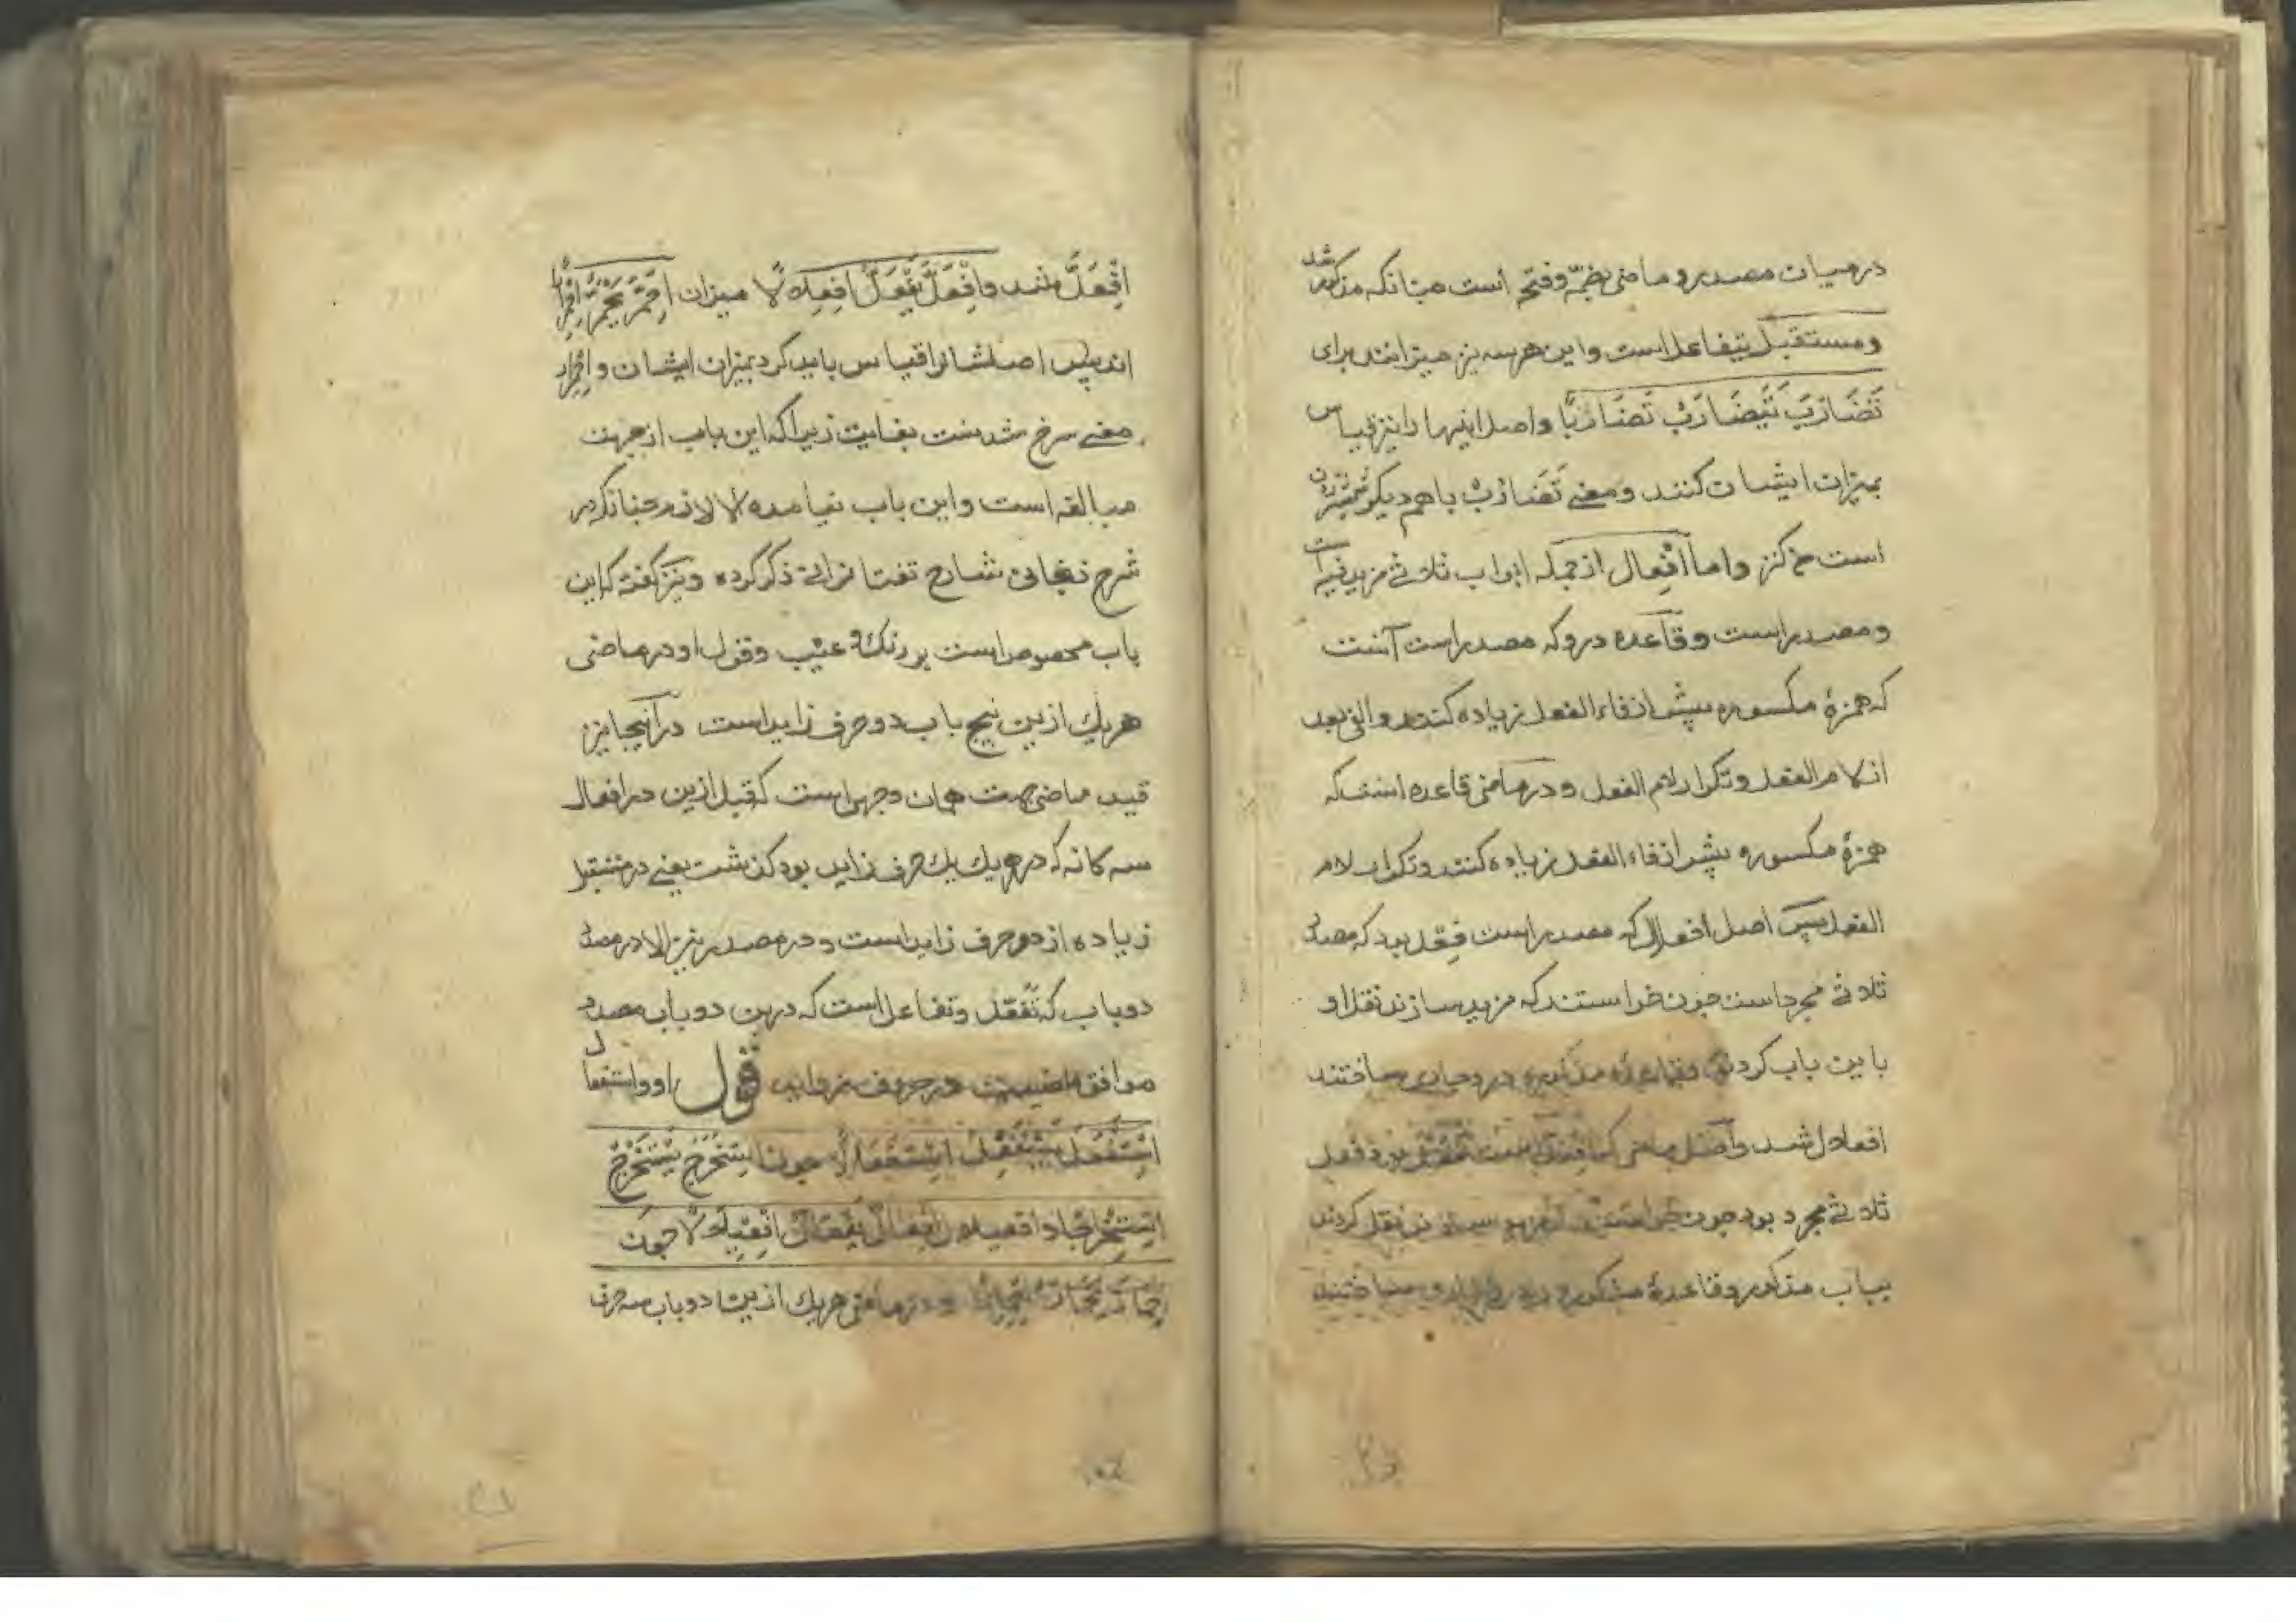 در میان مصدر و ماضی بضمّه و فتح است چنانکه مذکور شد
و مستقبل یتفاعل است و این هر سه نیز میزانند برای
تَضَارَبَ یَتَضَارَبُ تَضَارُبًا و اصل اینها را نیز قیاس
بمیزان ایشان کنند و معنی تَضَارُبْ با هم دیگر شمشیر زدن
است و اما افعِلال از جمله ابواب ثلاثی مزید فیه است
و مصدر است و قاعده درو که مصدر است آنست
که همزهٔ مکسوره پیش از فاء الفعل زیاده کنند و الفی بعد
از لام الفعل و تکرار لام الفعل و در ماضی قاعده است که
همزهٔ مکسوره پیش از فاء الفعل زیاده کنند و تکرار لام
الفعل پس اصل افعلال که مصدر است فعل بود که مصدر
ثلاثی مجرد است چون خواستند که مزید سازند نقل او
باین باب کردند و قاعدهٔ مذکوره درو جاری ساختند
افعلال شد و اصل ماضی که افعلّ است فعل بود فعل
ثلاثی مجرد بود چون خواستند که مزید سازند نقل کردند
بباب مذکور و قاعدهٔ مذکوره درو جاری ساختند
اِفْعَلَّ شد و اِفْعَلَّ یَفْعَلُّ اِفعِلالًا میزان اِحْمَرَّ یَحْمَرُّ اِحْمِرارًا
اند پس اصلشانرا قیاس باید کرد بمیزان ایشان و احمرار
معنی سرخ شدنست بغایت زیرا که این باب از جهت
مبالغه است و این باب نیامده الا لازم چنانکه در
شرح زنجانی شارح تفتازانی ذکر کرده و نیز گفته که این
باب مخصوص است بر رنگ و عیب و قول او در ماضی
هر یک ازین پنج باب دو حرف زاید است در آنجا نیز
قید ماضی جهت همان وجهی است که قبل ازین در افعال
سه کانه که در هر یک یک حرف زاید بود گذشت یعنی در مستقبل
زیاده از دو حرف زاید است و در مصدر نیز الا در مصدر
دو باب که تفعّل و تفاعل است که درین دو باب مصدر
موافق ماضیست در حروف زواید قول او و استفعال
اِسْتَفْعَلَ یَسْتَفْعِلُ اِسْتِفْعَالًا چون اِسْتَخْرَجَ یَسْتَخْرِجُ
اِسْتِخْرَاجًا و افعیلال اِفْعَالَّ یَفْعَالُّ اِفْعِیلَالًا چون
اِحْمَارَّ یَحْمَارُّ اِحْمِیرَارًا و در ماضی هر یک ازین دو باب سه حرف